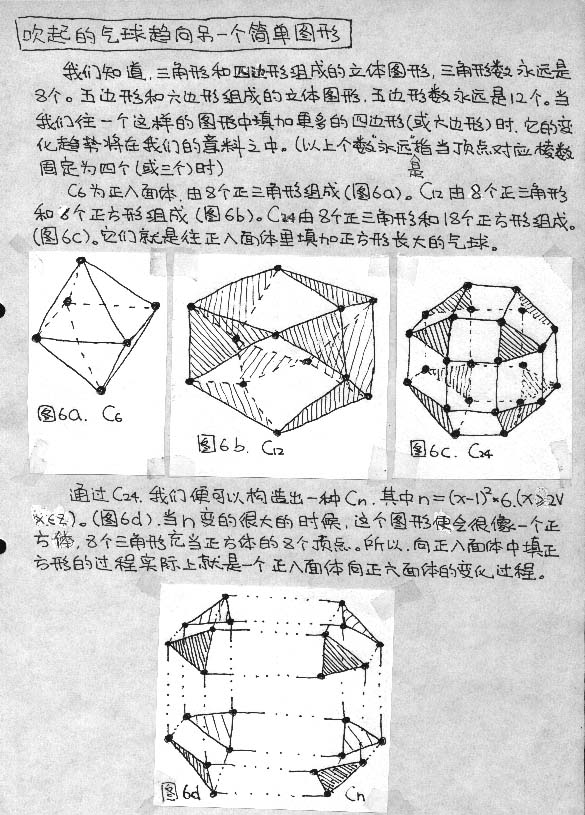 吹起的气球趋向另一个简单图形
我们知道,三角形和四边形组成的立体图形,三角形数永远是
8个。五边形和六边形组成的立体图形,五边形数永远是12个。当
我们往一个这样的图形中填加更多的四边形(或六边形)时,它的变
化趋势将在我们的意料之中。(以上个数"永远"指当顶点对应棱数
是
固定为四个(或三个)时)
C6为正八面体,由8个正三角形组成(图6a)。C12由8个正三角形
和6个正方形组成(图6b)。C24由8个正三角形和18个正方形组成。
(图6c)。它们就是往正八面体里填加正方形长大的气球。
图6a. C6
图6b. C12
图6c. C24
通过C24,我们便可以构造出一种Cn,其中n=(x-1)²×6,(x≥2∨
x∈Z)。(图6d).当n变的很大的时候,这个图形便会很像一个正
方体,8个三角形充当正方体的8个顶点。所以,向正八面体中填正
方形的过程实际上就是一个正八面体向正六面体的变化过程。
图6d
Cn